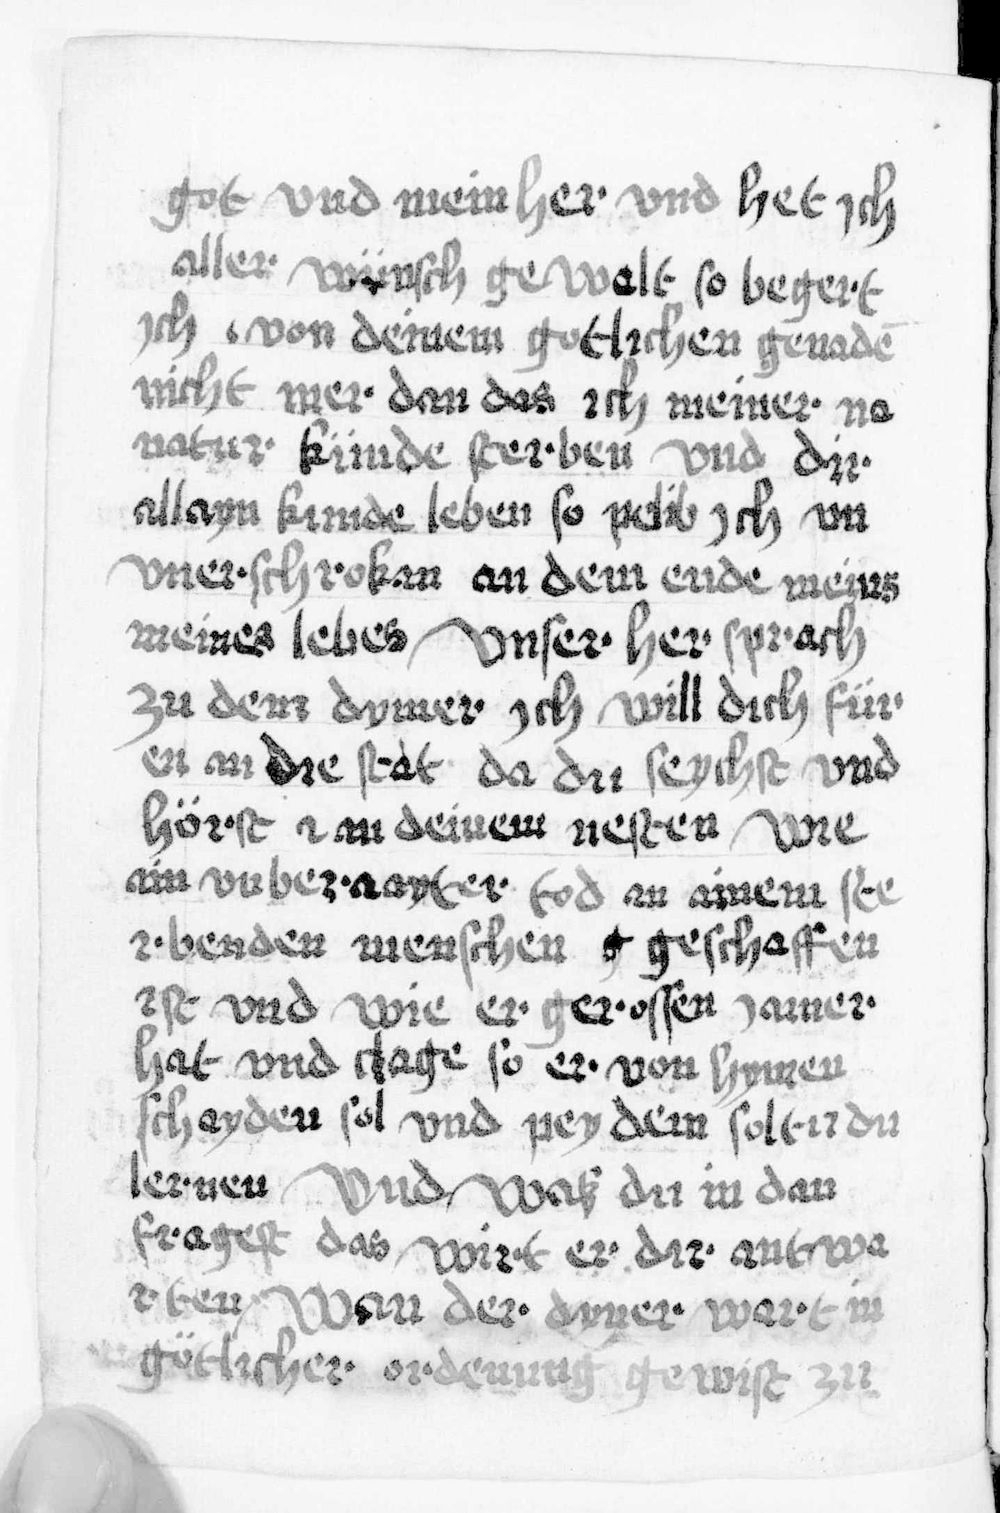 got vnd mein her vnd het ich
aller wünsch gewalt so begert
ich von deinem gotlichen genadē
nicht mer dan das ich meiner na
natur künde sterben vnd dir
allayn kunde leben so pelib ich vn
vnerschrokn an dem ende meins
meines lebes Vnser her sprach
zu dem dymer ich will dich für
en an die stat da du seychst vnd
hörst in deinem nesten wie
ain vnberaayter tod an ainem ste
rbenden menschen g geschaffen
ist vnd wie er gerossen iamer
hat vnd clage so er von hymen
schayden sol vnd pey dem soltu du
lernen Vnd was du in dan
fragest das wirt er dir antwa
rten Wan der dyner wart in
götlicher ordenung gewist zu